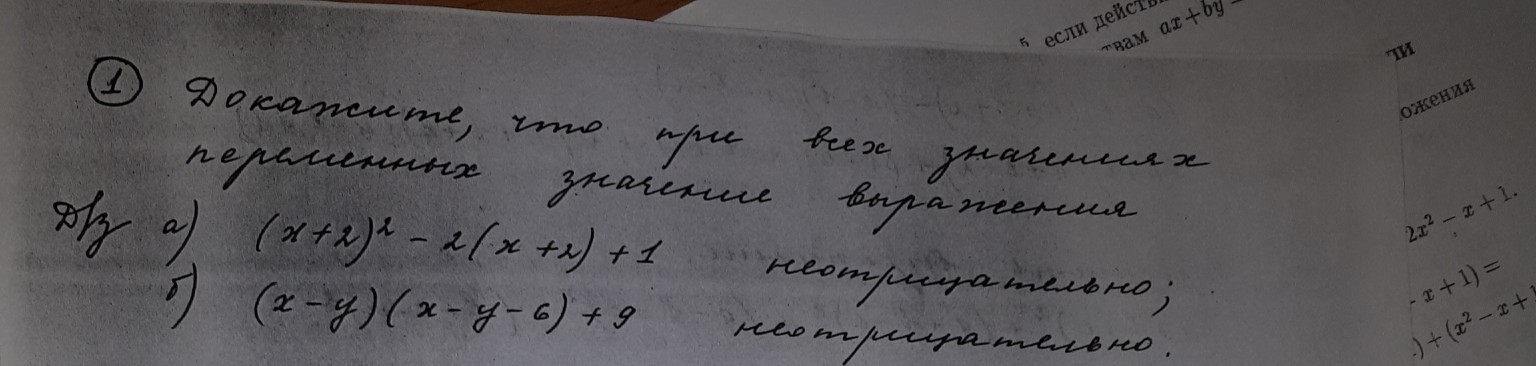 5 если действ
твам ax+by
ли
ожения
① Докажите, что при всех значениях
переменных значение выражения
Д/з а) (x+2)² - 2(x+2) + 1 неотрицательно;
б) (x-y)(x-y-6)+9 неотрицательно.
2x² - x + 1.
- x + 1) =
.) + (x² - x + 1